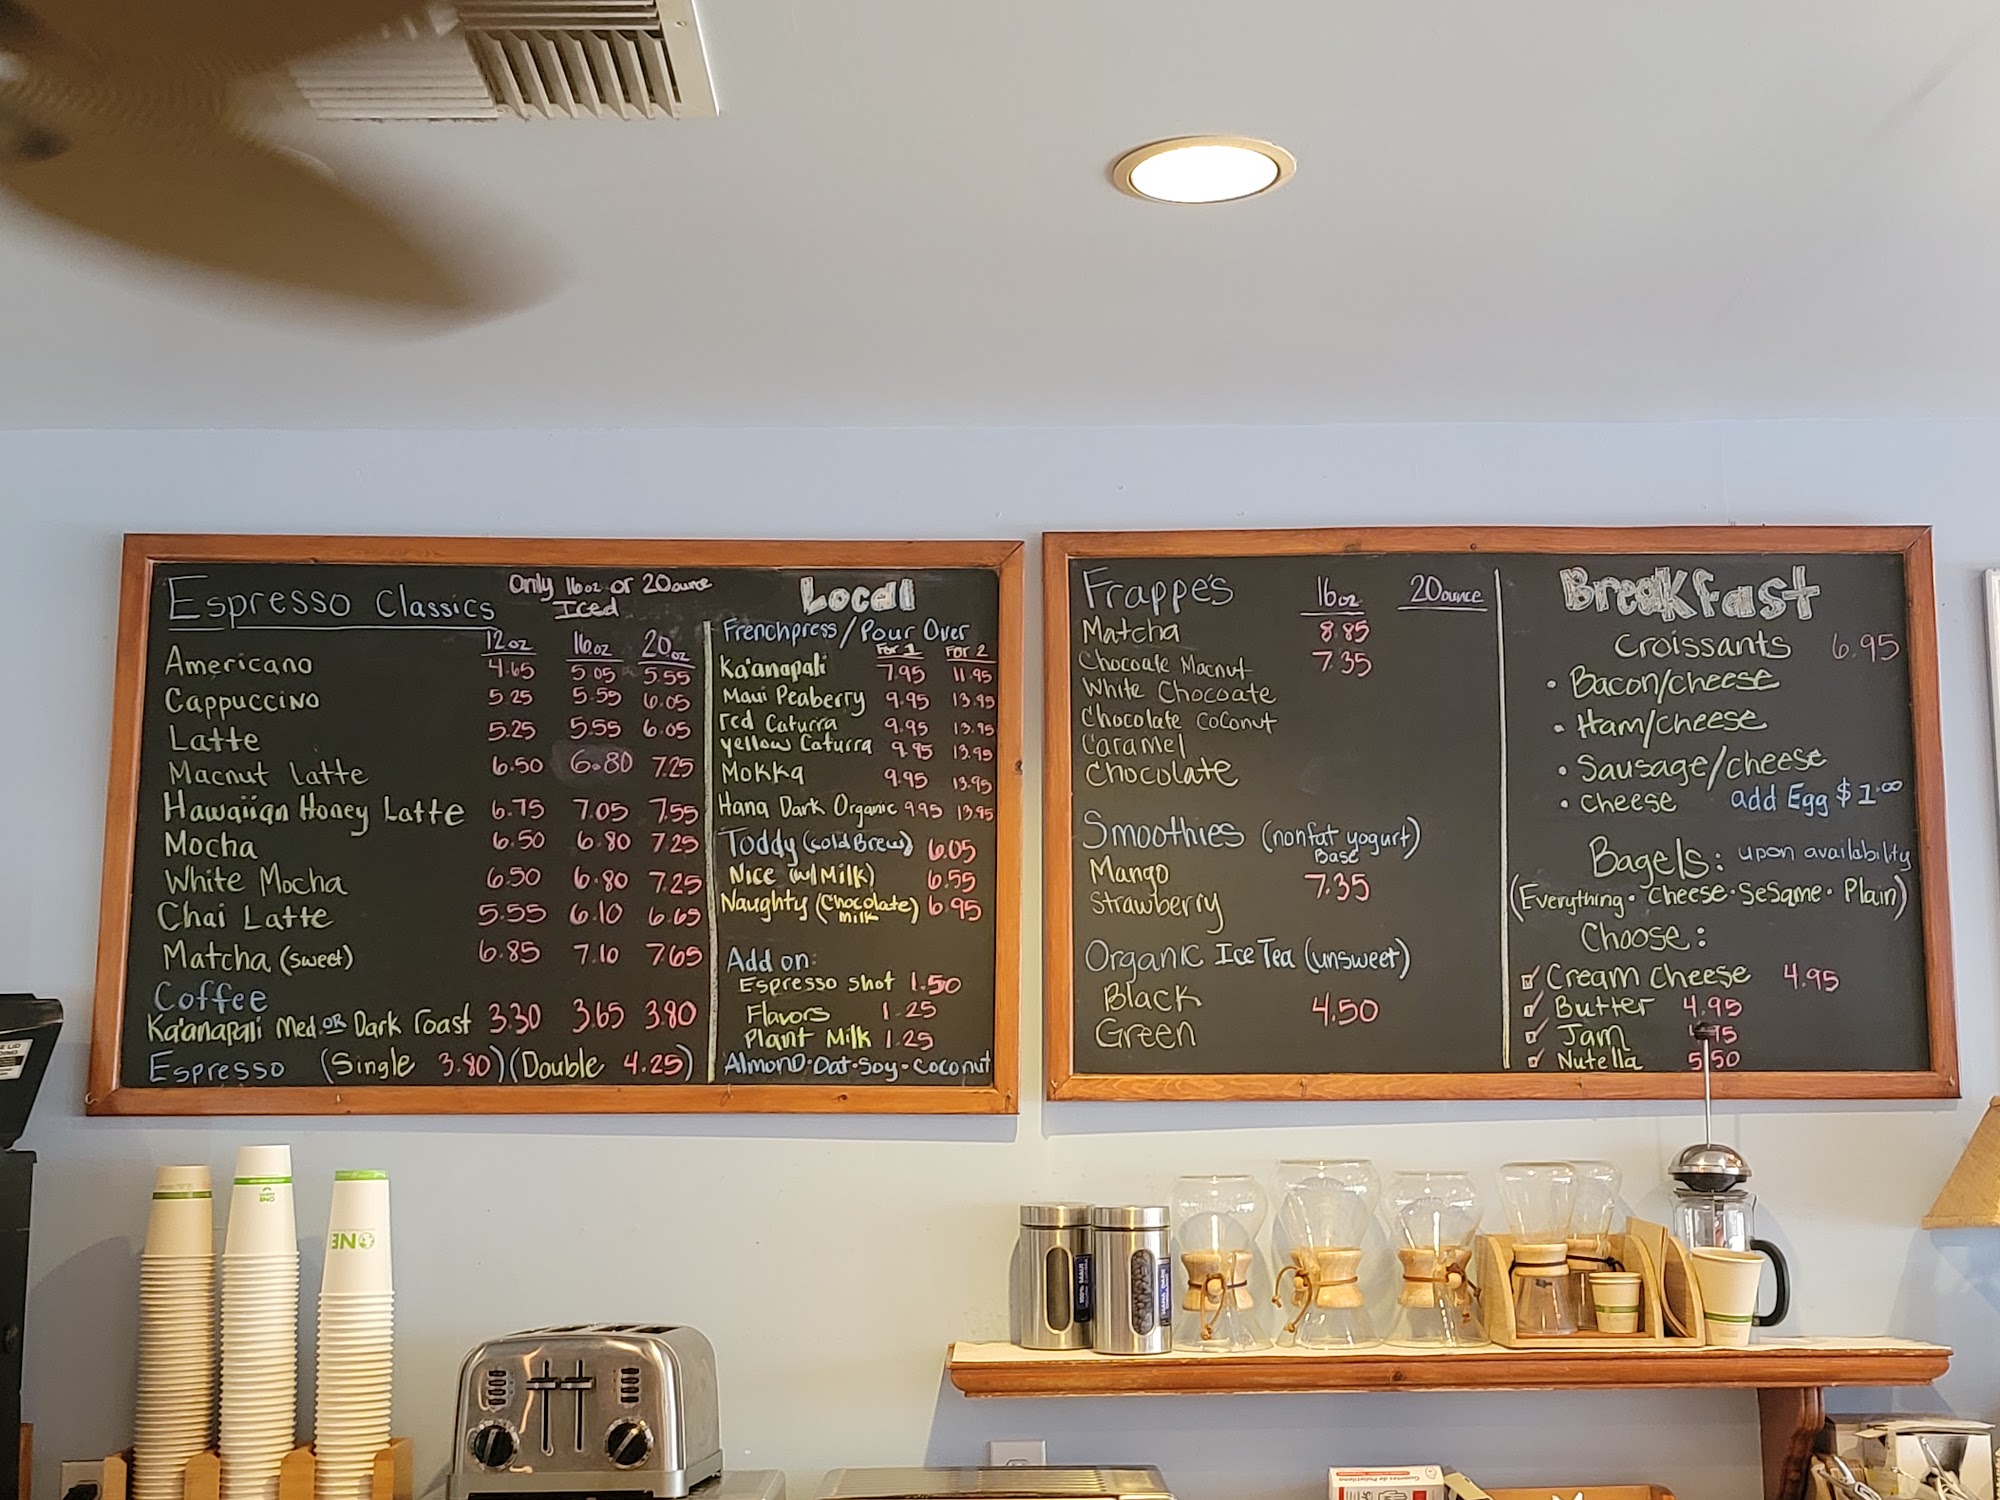 Espresso Classics
Only 16oz or 20ounce
Iced
12oz 16oz 20oz
Americano 4.65 5.05 5.55
Cappuccino 5.25 5.55 6.05
Latte 5.25 5.55 6.05
Macnut Latte 6.50 6.80 7.25
Hawaiian Honey Latte 6.75 7.05 7.55
Mocha 6.50 6.80 7.25
White Mocha 6.50 6.80 7.25
Chai Latte 5.55 6.10 6.65
Matcha (sweet) 6.85 7.10 7.65
Coffee
Ka'anapali Med. OR Dark roast 3.30 3.65 3.80
Espresso (Single 3.80) (Double 4.25)
Local
Frenchpress/Pour Over
For 1 For 2
Ka'anapali 7.95 11.95
Maui Peaberry 9.95 13.95
red Caturra 9.95 13.95
yellow Caturra 9.95 13.95
Mokka 9.95 13.95
Hana Dark Organic 9.95 13.95
Toddy (cold Brew) 6.05
Nice (w/ Milk) 6.55
Naughty (Chocolate Milk) 6.95
Add on:
Espresso shot 1.50
Flavors 1.25
Plant Milk 1.25
Almond·Oat·Soy·Coconut
Frappe's 16oz 20ounce
Matcha 8.85
Chocoate Macnut 7.35
White Chocoate
Chocolate Coconut
Caramel
Chocolate
Smoothies (nonfat yogurt)
Base
Mango 7.35
Strawberry
Organic Ice Tea (unsweet)
Black 4.50
Green
Breakfast
Croissants 6.95
• Bacon/cheese
• Ham/cheese
• Sausage/cheese
• cheese add Egg $1.00
Bagels: upon availability
(Everything · Cheese · Sesame · Plain)
Choose:
Cream cheese 4.95
Butter 4.95
Jam
Nutella 5.50
ONE
ONE